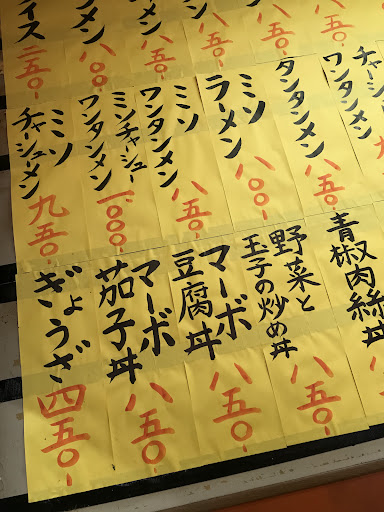 八五〇-
八五〇-
ン 八五〇-
メン 八五〇-
メン 八〇〇-
イス 二五〇-
ワンタンメン
タンタンメン 八五〇-
ミソ
ラーメン 八〇〇-
ミソ
ワンタンメン 八五〇-
ミソチャシュー
ワンタンメン 一、〇〇〇-
ミソ
チャシュメン 九五〇-
青椒肉絲丼 八五〇-
野菜と
玉子の炒め丼 八五〇-
マーボ
豆腐丼 八五〇-
マーボ
茄子丼 八五〇-
ぎょうざ 四五〇-